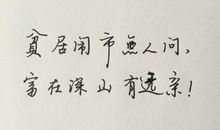 貧居闹市無人问，
富在深山有远亲！